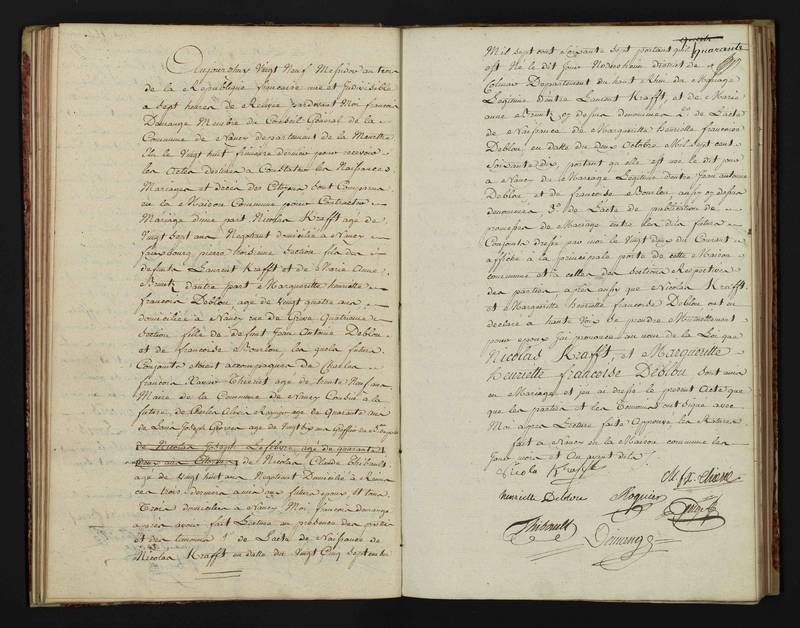 Aujourdhuy Vingt Neuf Messidor an trois
de la République francaise une et Indivisible
a sept heures de Relevée pardevant Moi francois
Demange Membre du Conseil Général de la
Commune de Nancy departement de la Meurthe
Elu le Vingt huit frimaire dernier pour recevoir
les Actes destinés a Constater les Naissances
Mariages et décès des Citoyens sont Comparus
en la Maison Commune pour Contracter
Mariage d'une part Nicolas Krafft agé de
Vingt sept ans Negotiant domicilié a Nancy
faubourg pierre huitieme Section fils de
defunt Laurent Krafft et de Marie Anne
d'autre part Margueritte henriette
francoise Deblou agée de Vingt quatre ans
domiciliée a Nancy rue de Quatrieme
Section fille de defunt Jean Antoine Deblou
et de francoise Bourlon, les quels futurs
Conjoints etoient accompagnés de Charles
francois Xavier Thieriet agé de trente Neuf ans
Maire de la Commune de Nancy Cousin a la
future, de Charles agé de Quarante ans
de Louis Joseph agé de Vingt
de Nicolas Joseph Lefebvre agé de quarante
de Nicolas Claude Thibault
agé de Vingt huit ans Negotiant Domicilié a
ces trois derniers amis des futurs epoux et tous
Trois domiciliés a Nancy Moi francois Demange
apres avoir fait Lecture en présence des parties
et des temoins 1° de L'acte de Naissance de
Nicolas Krafft en datte du Vingt Cinq Septembre
Quarante
Mil sept cent Soixante sept portant qu'il
est Né le dit jour District de
Colmar Departement du haut Rhin du Mariage
Legitime D'entre Laurent Krafft, et de Marie
anne cy dessus denommés 2° de L'acte
de Naissance de Margueritte henriette francoise
Deblou, en datte du deux Octobre Mil sept cent
Soixante dix, portant qu'elle est née le dit jour
a Nancy du Mariage Legitime d'entre Jean antoine
Deblou et de francoise Bourlon aussy cy dessus
denommés, 3° de L'acte de publication de
promesses de Mariage entre les dits futurs
Conjoints dressé par moi le Vingt du Courant
affiché a la principale porte de cette Maison
commune et a celles des Sections Respectives
des parties après aussy que Nicolas Krafft
et Margueritte henriette francoise Deblou ont eu
declaré a haute Voix se prendre Mutuellement
pour epoux j'ai prononcé au nom de la Loi que
Nicolas Krafft, et Margueritte
henriette francoise Deblou sont unis
en Mariage et j'en ai dressé le present Acte que
que les parties et les Temoins ont signé avec
Moi apres Lecture faite Approuvé les Ratures
fait a Nancy en la Maison commune les
Jour mois et an avant dits
Nicolas Krafft
henriette Deblou
Thibault
Demange